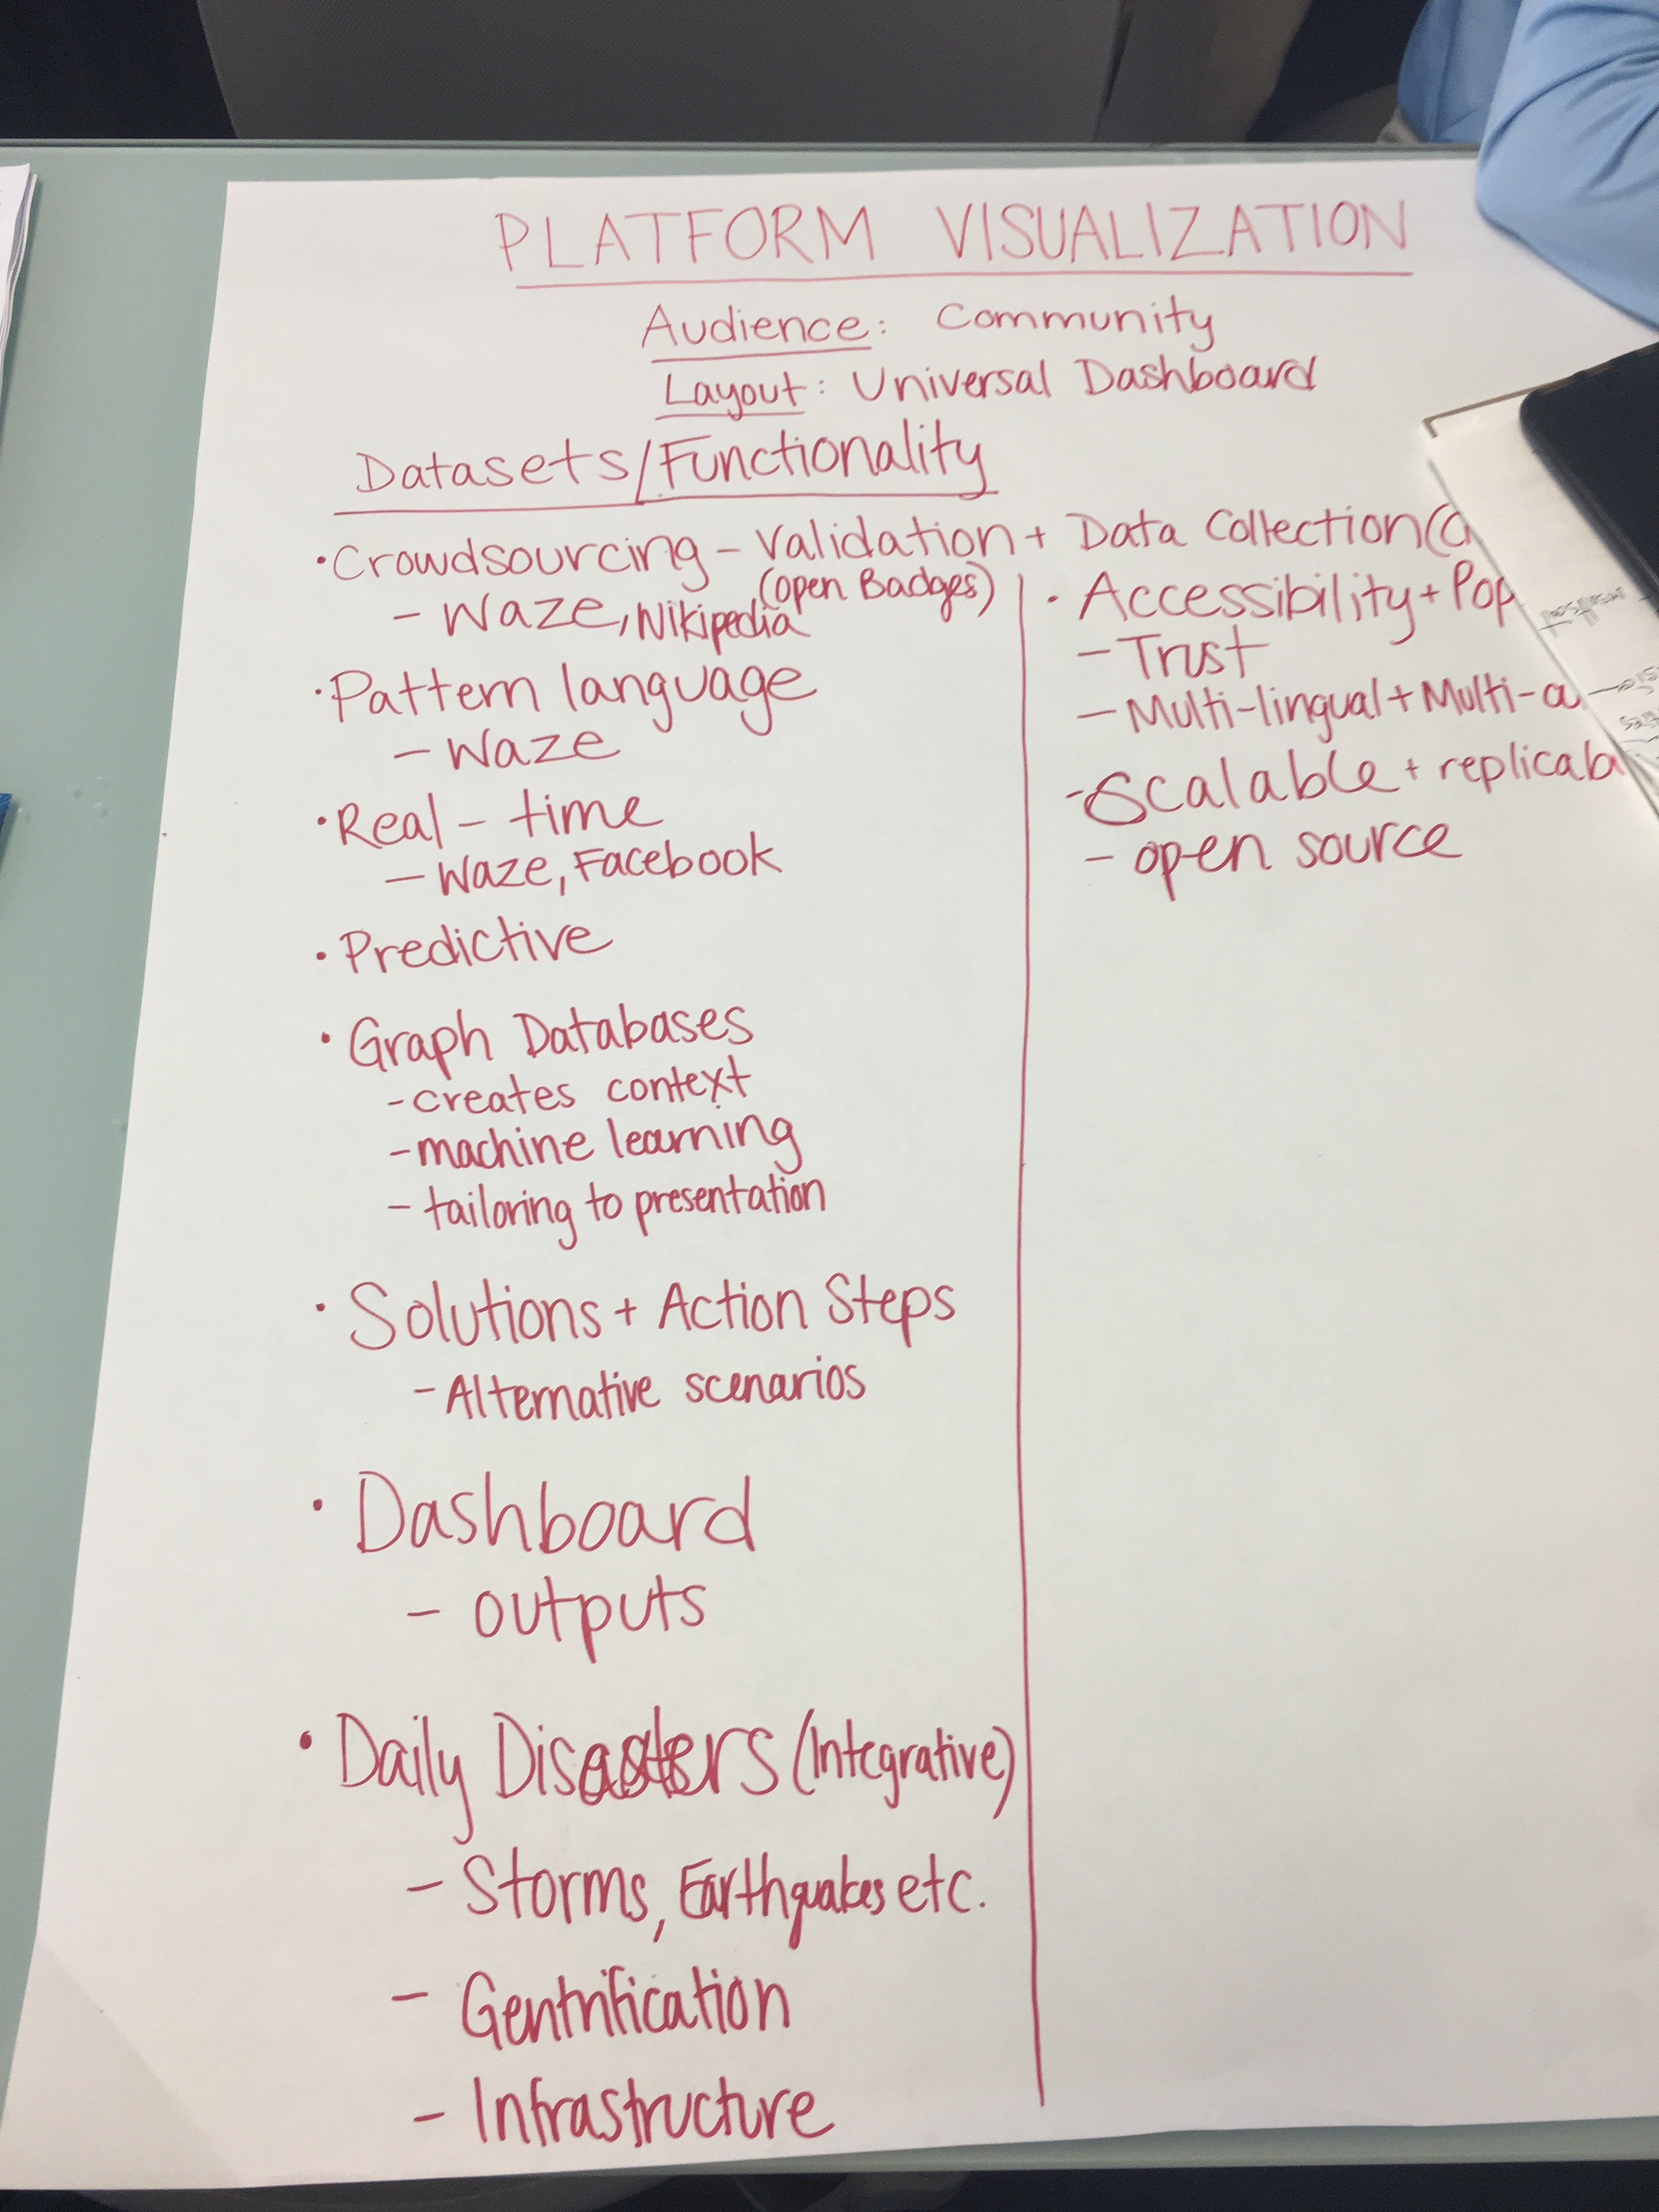 PLATFORM VISUALIZATION
Audience: Community
Layout: Universal Dashboard
Datasets/Functionality
· Crowdsourcing - Validation + Data Collection
(open Badges)
- Waze, Wikipedia
· Pattern language
- Waze
· Real-time
- Waze, Facebook
· Predictive
· Graph Databases
- creates context
- machine learning
- tailoring to presentation
· Solutions + Action Steps
- Alternative scenarios
· Dashboard
- outputs
· Daily Disasters (Integrative)
- Storms, Earthquakes etc.
- Gentrification
- Infrastructure
· Accessibility + Pop
- Trust
- Multi-lingual + Multi-a
- Scalable + replicab
- open source